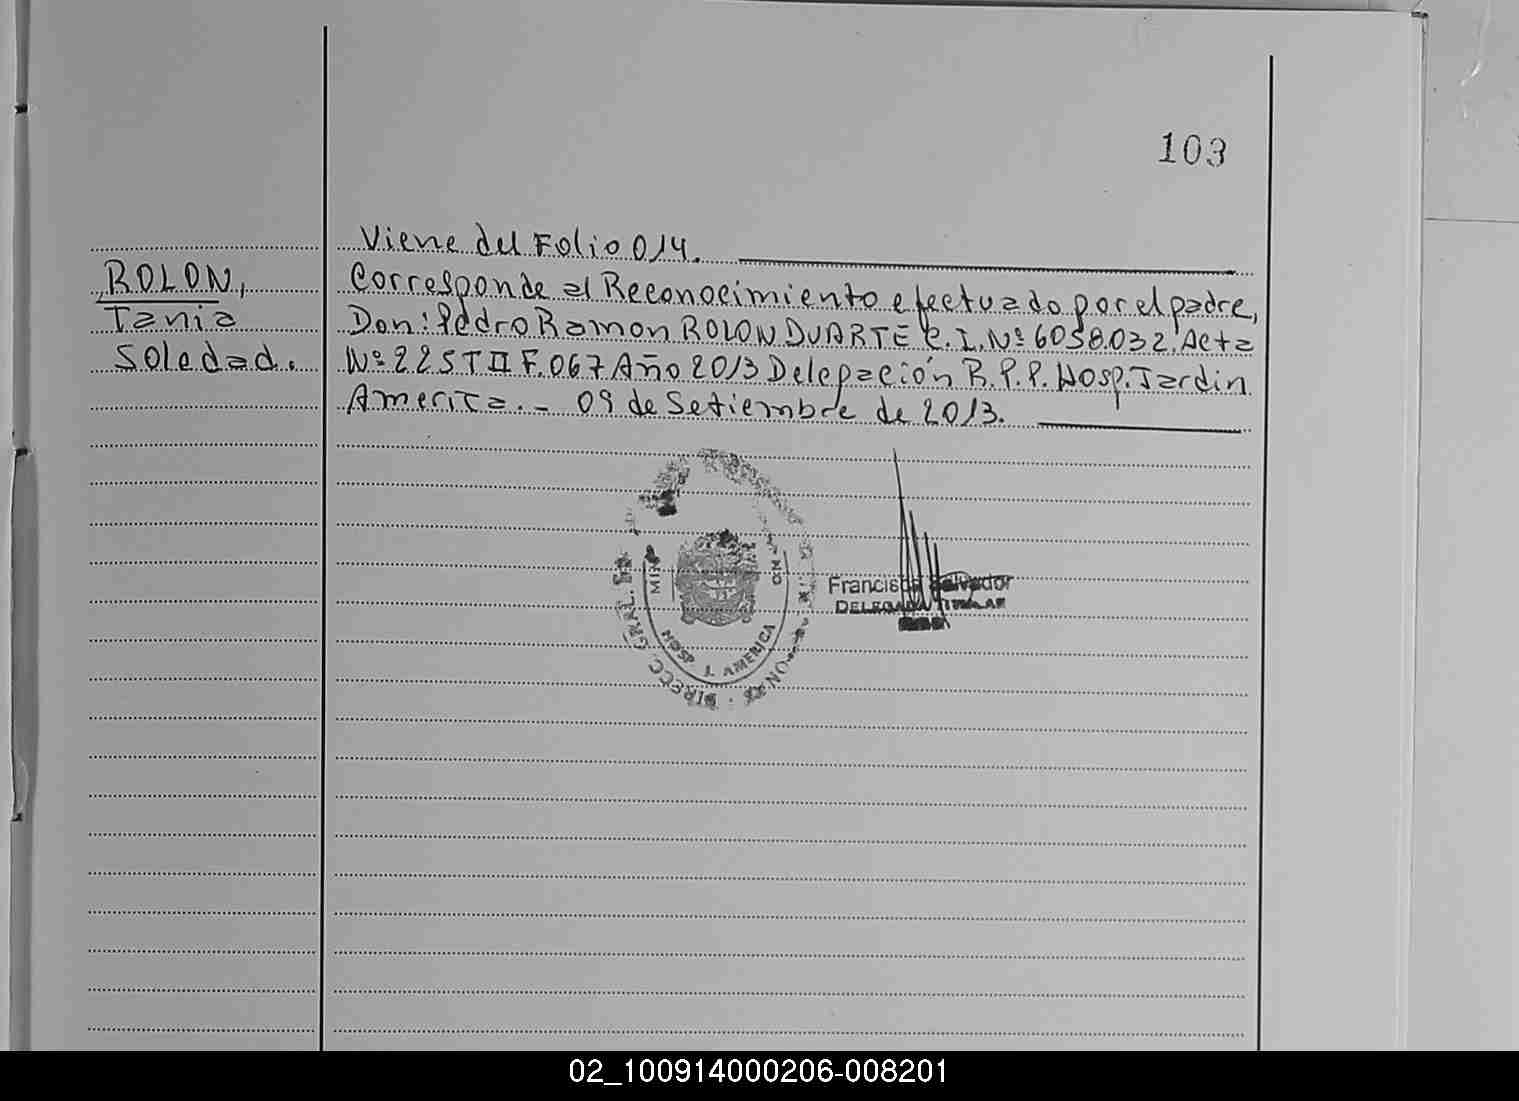 103
Viene del Folio 014.
ROLON,
Tania
Soledad.
Corresponde al Reconocimiento efectuado por el padre,
Don: Pedro Ramon ROLON DUARTE C.I. Nº 6058.032. Acta
Nº 225 T II F. 067 Año 2013 Delegación R.P.P. Hosp. Jardin
America. - 09 de Setiembre de 2013.
DIRECC. GRAL.
MIN
HOSP J. AMERICA
Francisco Salvador
DELEGADO TITULAR
02_100914000206-008201